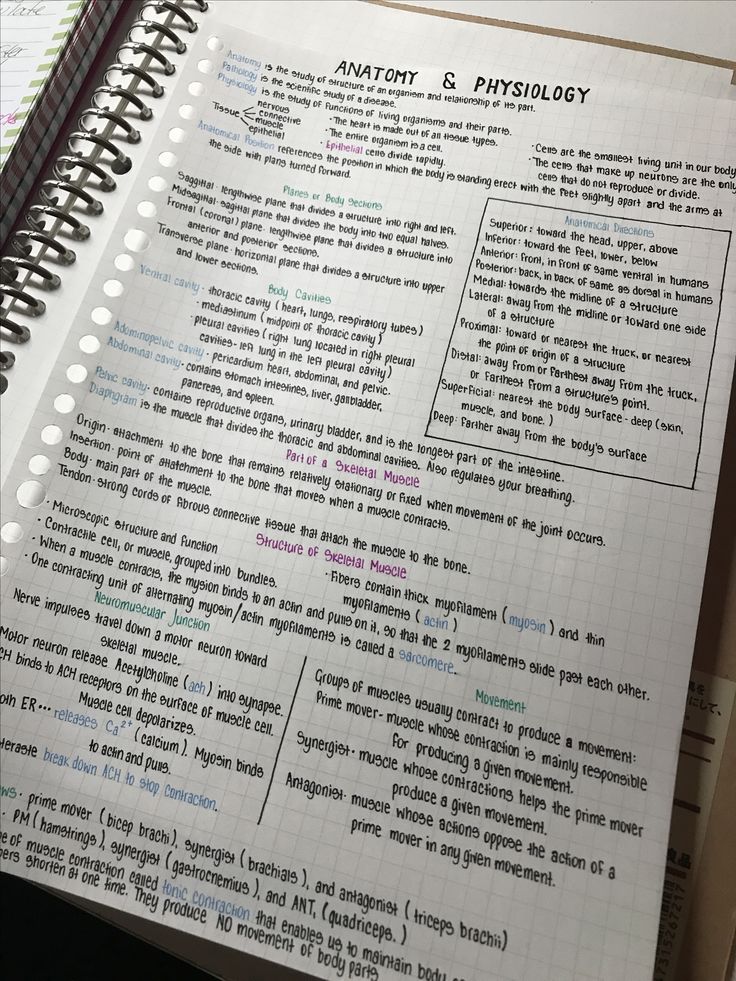 ANATOMY & PHYSIOLOGY
Anatomy is the study of structure of an organism and relationship of its part.
Pathology is the scientific study of a disease.
Physiology is the study of functions of living organisms and their parts.
Tissue
nervous
connective
muscle
epithelial
· The heart is made out of all tissue types.
· The entire organism is a cell.
· Epithelial cells divide rapidly.
· Cells are the smallest living unit in our body
· The cells that make up neurons are the only
cells that do not reproduce or divide.
Anatomical Position references the position in which the body is standing erect with the feet slightly apart and the arms at
the side with plans turned forward.
Planes or Body Sections
Saggital· lengthwise plane that divides a structure into right and left.
Midsagital· sagital plane that divides the body into two equal halves.
Frontal (coronal) plane· lengthwise plane that divides a structure into
anterior and posterior sections.
Transverse plane· horizontal plane that divides a structure into upper
and lower sections.
Body Cavities
Ventral cavity· thoracic cavity (heart, lungs, respiratory tubes)
· mediastinum (midpoint of thoracic cavity)
· pleural cavities (right lung located in right pleural
cavities- left lung in the left pleural cavity)
Adominopelvic cavity· pericardium heart, abdominal, and pelvic.
Abdominal cavity· contains stomach intestines, liver, gallbladder,
pancreas, and spleen.
Pelvic cavity· contains reproductive organs, urinary bladder, and is the longest part of the intestine.
Diaphgram is the muscle that divides the thoracic and abdominal cavities. Also regulates your breathing.
Anatomical Directions
Superior: toward the head, upper, above
Inferior: toward the feet, lower, below
Anterior: front, in front of same ventral in humans
Posterior: back, in back of same as dorsal in humans
Medial: towards the midline of a structure
Lateral: away from the midline or toward one side
of a structure
Proximal: toward or nearest the truck, or nearest
the point of origin of a structure
Distal: away from or farthest away from the truck,
or farthest from a structure's point.
Superficial: nearest the body surface - deep (skin,
muscle, and bone.)
Deep: farther away from the body's surface
Part of a Skeletal Muscle
Origin· attachment to the bone that remains relatively stationary or fixed when movement of the joint occurs.
Insertion· point of attatchment to the bone that moves when a muscle contracts.
Body· main part of the muscle.
Tendon· strong cords of fibrous connective tissue that attach the muscle to the bone.
Structure of Skeletal Muscle
· Microscopic structure and function
· Contractile cell, or muscle, grouped into bundles.
· Fibers contain thick myofilament (myosin) and thin
myofilaments (actin)
· When a muscle contracts, the mysion binds to an actin and pulls on it, so that the 2 myofilaments slide past each other.
· One contracting unit of alternating myosin/actin myofilaments is called a sarcomere.
Neuromuscular Junction
Nerve impulses travel down a motor neuron toward
skeletal muscle.
Motor neuron release Acetylcholine (ach) into synapse.
CH binds to ACH receptors on the surface of muscle cell.
Muscle cell depolarizes.
oth ER... releases Ca²⁺ (calcium). Myosin binds
to actin and pulls.
break down ACH to stop contraction.
Movement
Groups of muscles usually contract to produce a movement:
Prime mover· muscle whose contraction is mainly responsible
for producing a given movement.
Synergist· muscle whose contractions helps the prime mover
produce a given movement.
Antagonist· muscle whose actions oppose the action of a
prime mover in any given movement.
ws· prime mover (bicep brachi), synergist (brachials), and antagonist (triceps brachii)
· PM (hamstrings), synergist (gastrocnemius), and ANT, (quadriceps.)
of muscle contraction called tonic contraction that enables us to maintain body
bers shorten at one time. They produce NO movement of body parts
7315267217